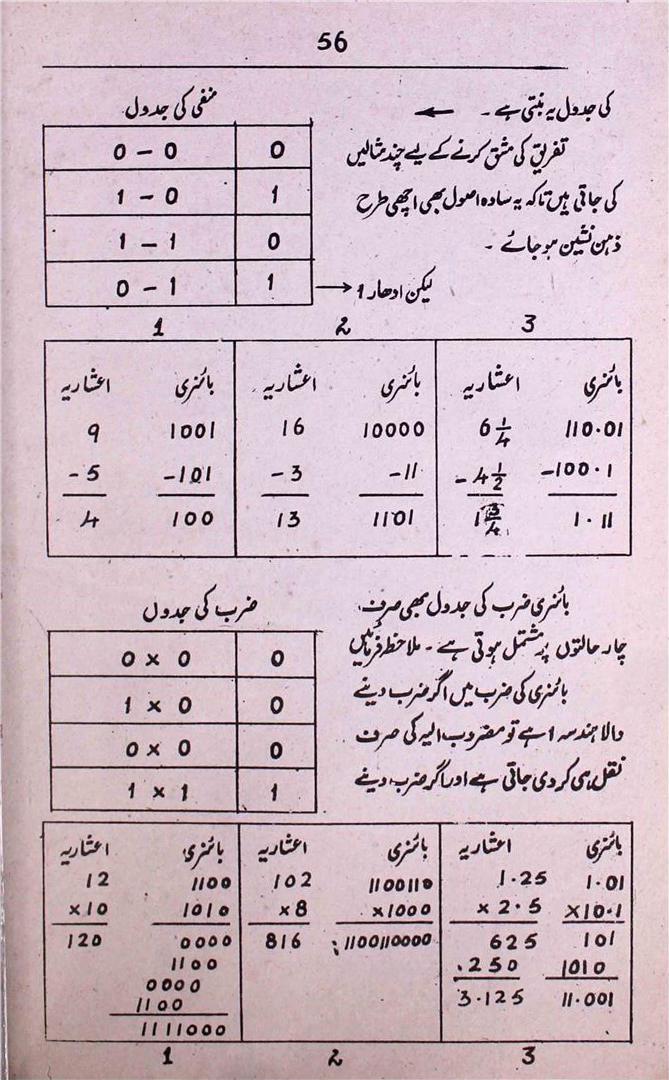 56
کی جدول یہ بنتی ہے۔ ←
تفریق کی مشق کرنے کے لیے چند مثالیں
کی جاتی ہیں تاکہ یہ سادہ اصول بھی اچھی طرح
ذہن نشین ہو جائے ۔
منفی کی جدول
0 – 0 | 0
1 – 0 | 1
1 – 1 | 0
0 – 1 | 1 → لیکن ادھار 1
1 2 3
اعشاریہ بائنری | اعشاریہ بائنری | اعشاریہ بائنری
9 1001 | 16 10000 | 6 1/4 110.01
-5 -101 | -3 -11 | -4 1/2 -100.1
4 100 | 13 1101 | 1 3/4 1.11
بائنری ضرب کی جدول بھی صرف
چار حالتوں پر مشتمل ہوتی ہے ۔ ملاحظہ فرمائیں
بائنری کی ضرب میں اگر ضرب دینے
والا ہندسہ 1 ہے تو مضروب الیہ کی صرف
نقل ہی کر دی جاتی ہے اور اگر ضرب دینے
ضرب کی جدول
0 x 0 | 0
1 x 0 | 0
0 x 0 | 0
1 x 1 | 1
اعشاریہ بائنری | اعشاریہ بائنری | اعشاریہ بائنری
12 1100 | 102 1100110 | 1.25 1.01
x10 1010 | x8 x1000 | x 2.5 X10.1
120 0000 | 816 1100110000 | 625 101
1100 | .250 1010
0000 | 3.125 11.001
1100
1111000
1 2 3